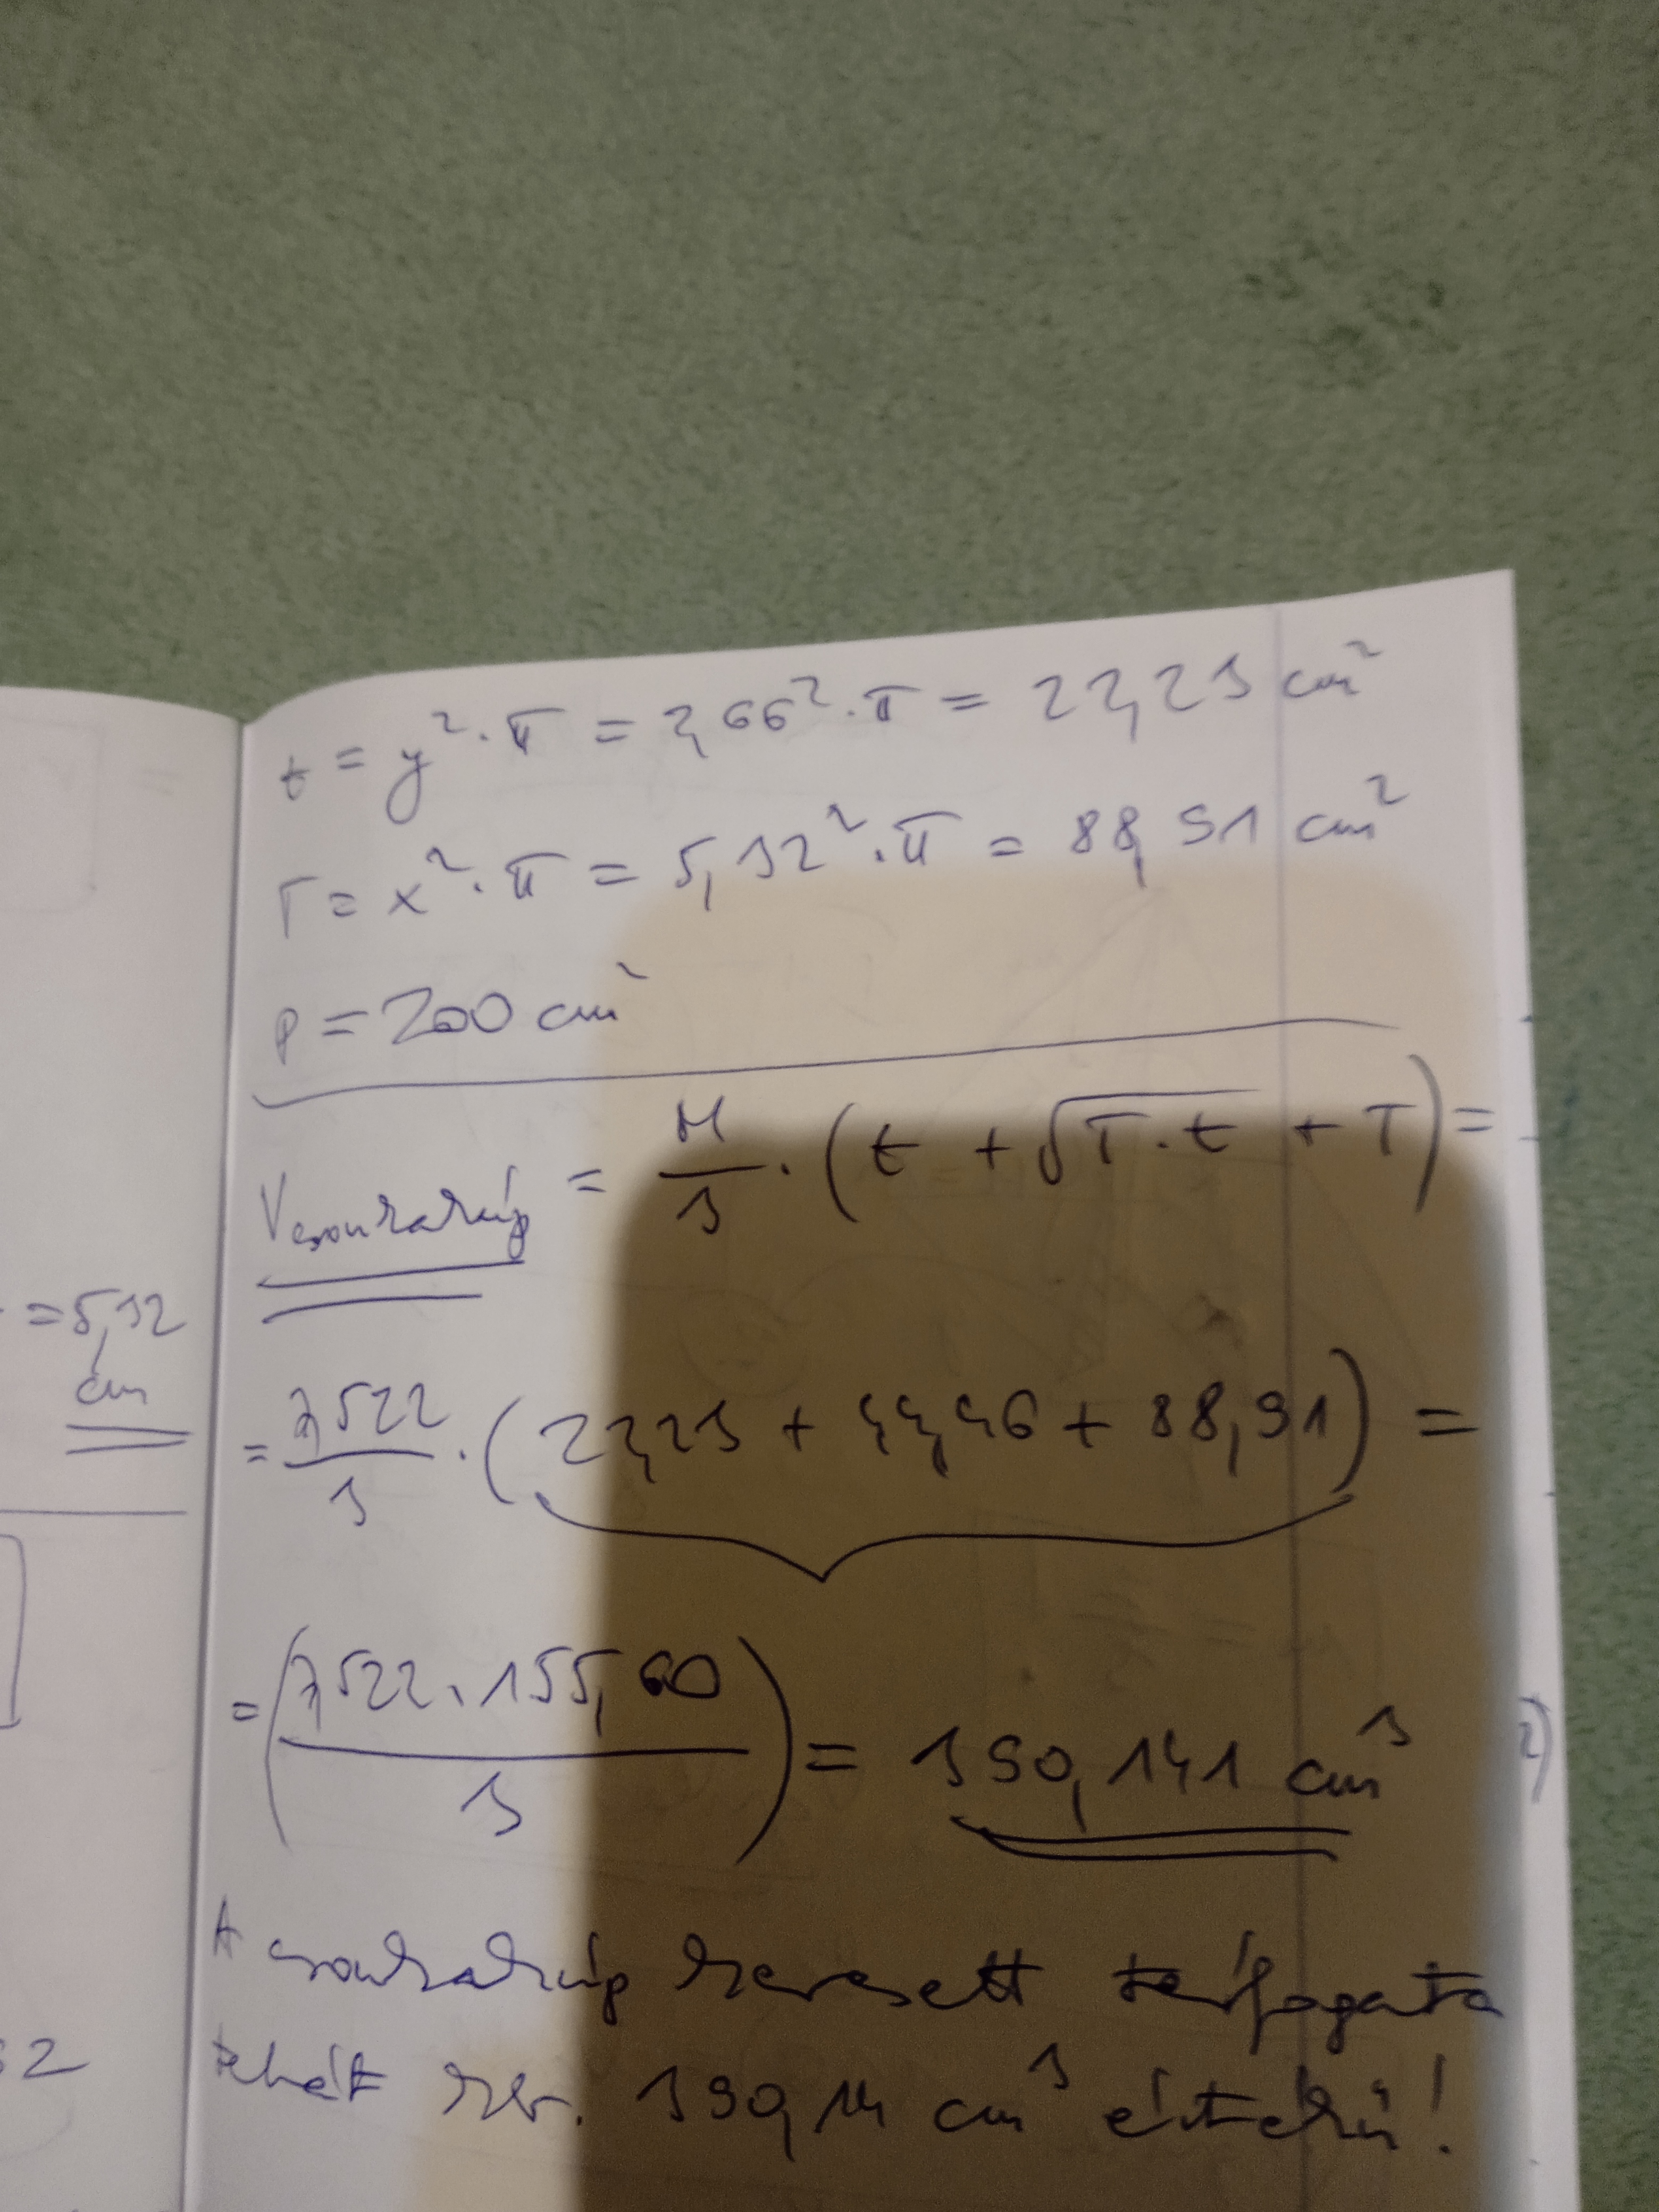 t = y² · π = 2,66² · π = 22,23 cm²
T = x² · π = 5,32² · π = 88,91 cm²
P = 200 cm²
Vcsonkakúp = M/3 · (t + √T · t + T) =
= 5,32
cm
= 7,522/3 · (22,23 + 44,46 + 88,91) =
= (7,522 · 155,60 / 3) = 390,141 cm³
2)
A csonkakúp keresett térfogata
52
tehát kb. 390,14 cm³ értékű!